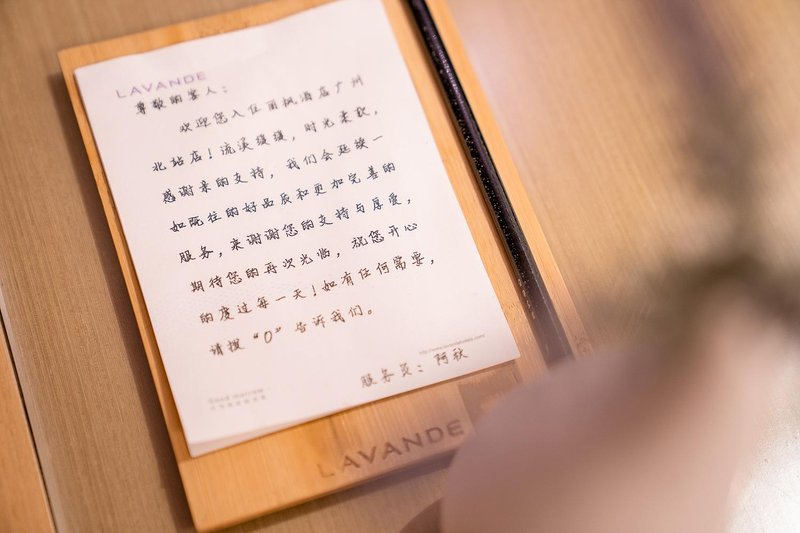 LAVANDE
尊敬的客人：
欢迎您入住丽枫酒店广州
北站店！流溪缓缓，时光柔软，
感谢来的支持，我们会延续一
如既往的好品质和更加完善的
服务，来谢谢您的支持与厚爱，
期待您的再次光临，祝您开心
的度过每一天！如有任何需要，
请拨“0”告诉我们。
http://www.lavandehotels.com/
服务员：阿秋
Good morrow
LAVANDE